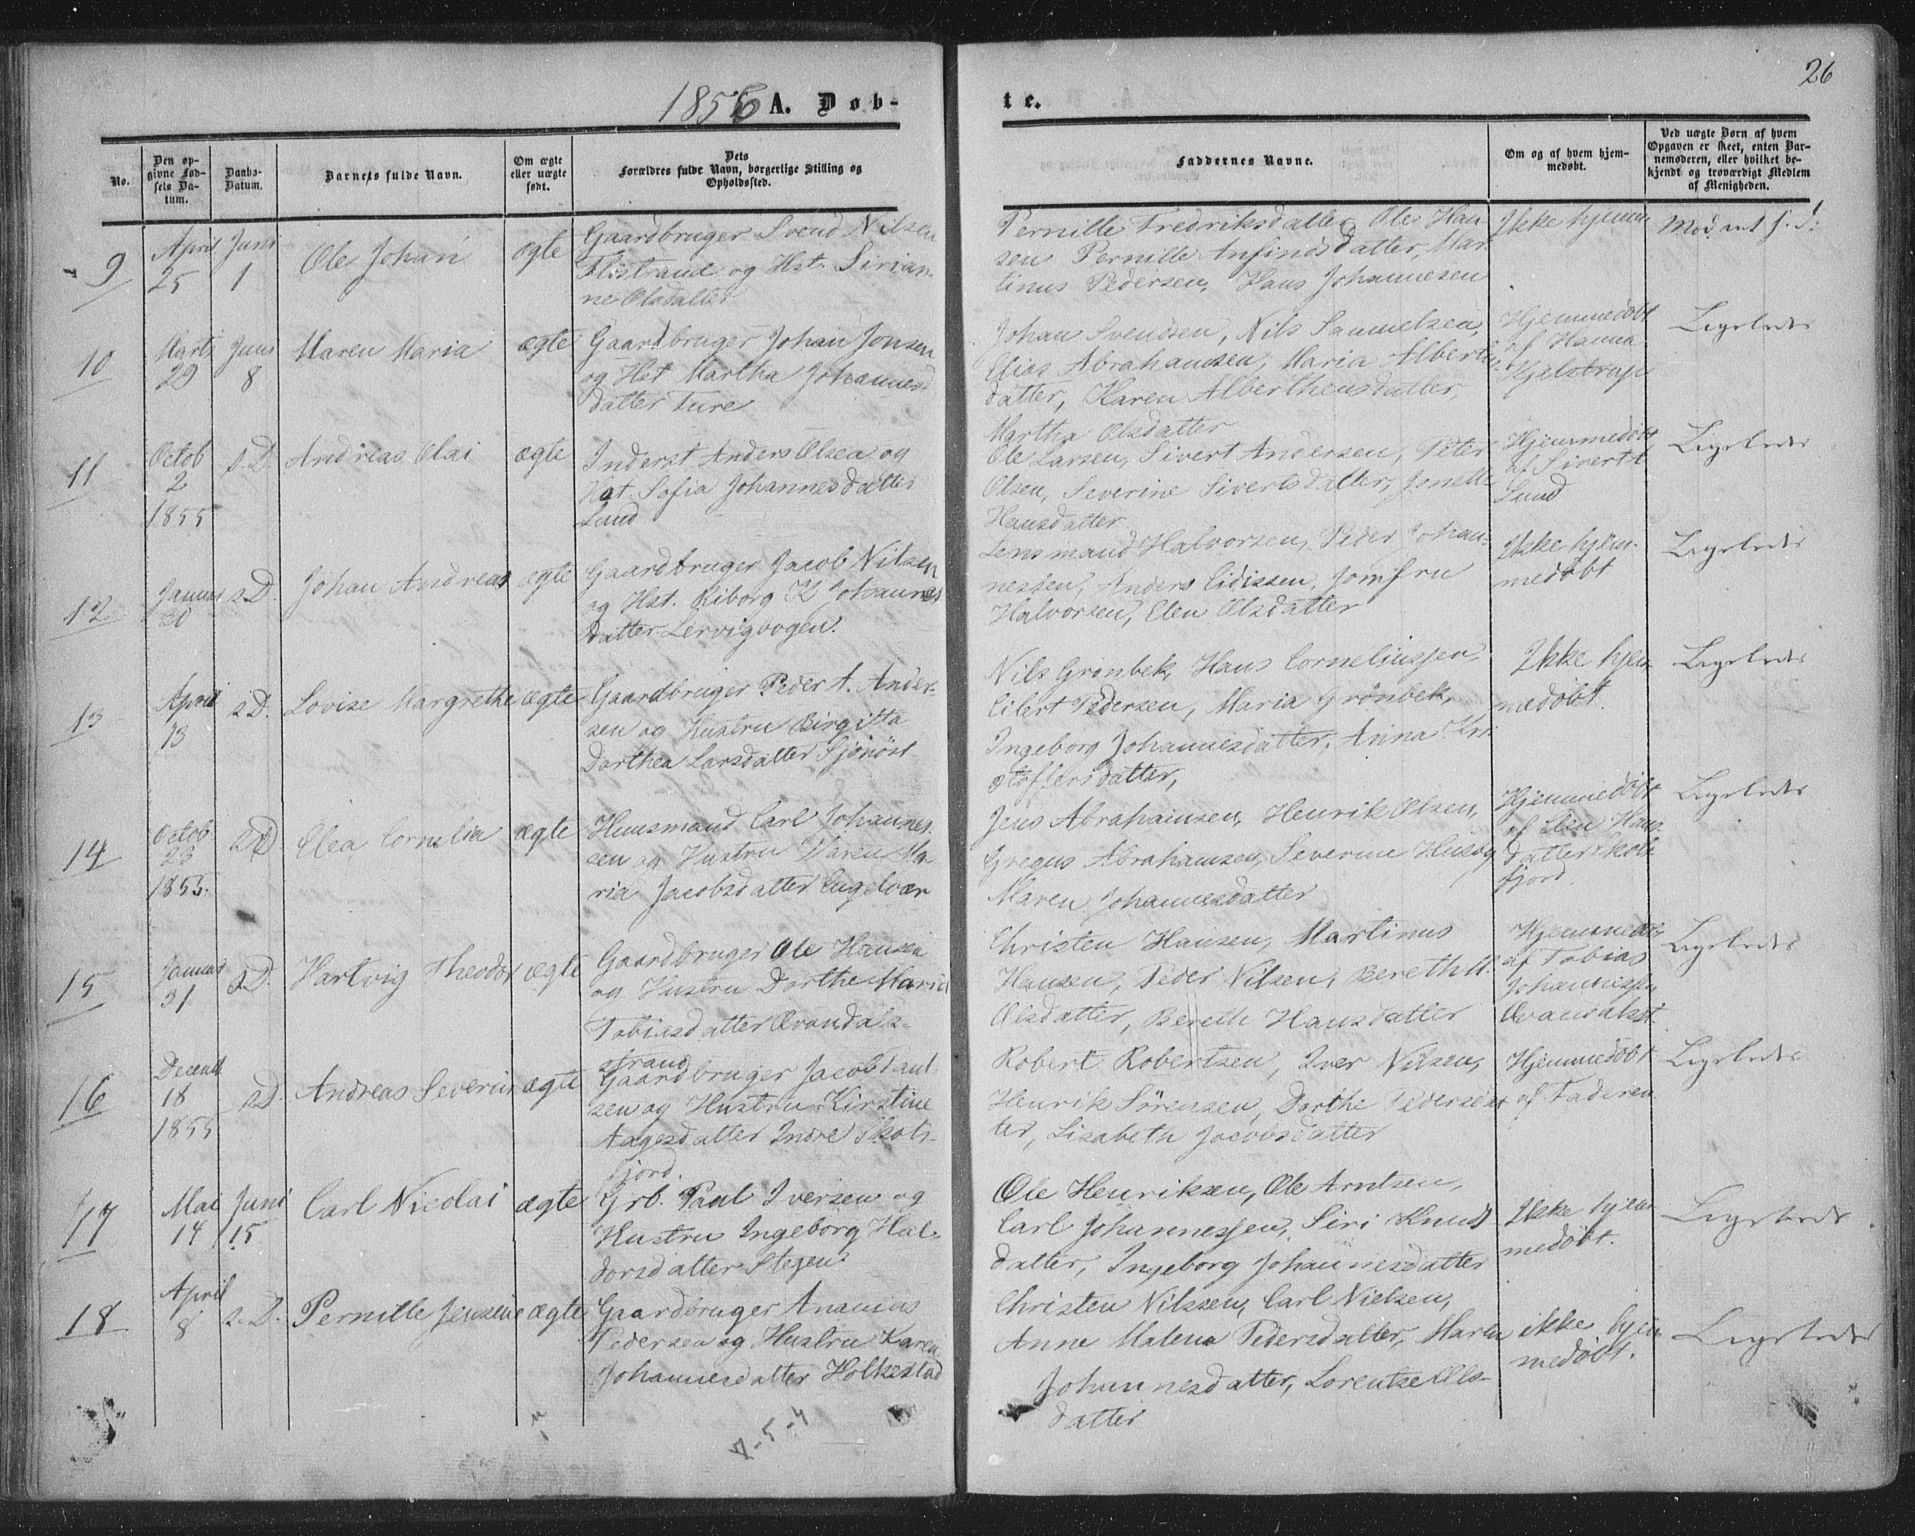 26
1856 A. Døb-
te.
No.
Den op-
givne Fød-
sels Da-
tum.
Daabs-
Datum.
Barnets fulde Navn.
Om ægte
eller uægte
født.
Dets
Forældres fulde Navn, borgerlige Stilling og
Opholdssted.
Faddernes Navne.
Om og af hvem hjem-
medøbt.
Ved uægte Børn af hvem
Opgaven er skeet, enten Bar-
nemoderen, eller hvilket be-
kjendt og troværdigt Medlem
af Menigheden.
9
April
25
Juni
1
Ole Johan
ægte
Gaardbruger Svend Nilsen
og Hst. Sirian-
ne Olsdatter
Pernille Fredriksdatter, Ole Han-
sen Pernille Anfindsdatter, Mar-
tinus Pedersen, Hans Johannesen
Ikke hjem
10
Marts
29
Juni
8
Maren Maria
ægte
Gaardbruger Johan Jonsen
og Hst Martha Johannes
datter Ture
Johan Svendsen, Nils Samuelsen,
Elias Abrahamsen, Maria Alberts-
datter, Karen Alberthensdatter,
Martha Olsdatter
Hjemmedøbt
af Hanna
Kjelstrup
Ligeledes
11
Octob
2
1855
s. D.
Andreas Olai
ægte
Inderst Anders Olsen og
Hst. Sofia Johannesdatter
Lund
Ole Larsen, Sivert Andersen, Peter
Olsen, Severine Sivertsdatter, Jonelle
Hansdatter
Hjemmedøbt
af Sivert
Lund
Ligeledes
12
Januar
20
s D.
Johan Andreas
ægte
Gaardbruger Jacob Nilsen
og Hst. Riborg K Johannes
datter Lervigvogen.
Lensmand Halvorsen, Peder Johan-
nessen, Anders Eidissen, Jomfru
Halvorsen, Elen Olsdatter
Ikke hjem-
medøbt
Ligeledes
13
April
13
s D.
Lovise Margrethe
ægte
Gaardbruger Peder A. Ander-
sen og Hustru Birgitta
Dorthea Larsdatter
Nils Grønbek, Hans Corneliussen,
Eilert Pedersen, Maria Grønbek,
Ingeborg Johannesdatter, Anna Kri
stoffersdatter,
Ikke hjem
medøbt.
Ligeledes
14
Octob
23
1855.
s D
Elea Cornelia
ægte
Huusmand Carl Johannes-
sen og Hustru Maren Ma-
ria Jacobsdatter Engelvær
Jens Abrahamsen, Henrik Olsen,
Gregus Abrahamsen, Severine
Maren Johannesdatter
Hjemmedøbt
af Elen Hans
datter Skots-
fjord
Ligeledes
15
Januar
31
s D.
Hartvig Theodor
ægte
Gaardbruger Ole Hansen
og Hustru Dorthe Maria
Tobiasdatter Qvandals-
strand
Christen Hansen, Martinus
Hansen, Peder Nilsen, Bereth M.
Olsdatter, Bereth Hansdatter
Hjemmedøbt
af Tobias
Johannessen
Ligeledes
16
Decemb
18
1855
s D.
Andreas Severin
ægte
Gaardbruger Jacob Paul
sen og Hustru Kirstine
Aagesdatter Indre Skots-
fjord.
Robert Robertsen, Iver Nilsen,
Henrik Sørensen, Dorthe Pedersdat
ter, Lisabeth Jacobsdatter
Hjemmedøbt
af Faderen
Ligeledes
17
Mai
14
Juni
15
Carl Nicolai
ægte
Grb. Paul Iversen og
Hustru Ingeborg Hal-
dorsdatter Stegen
Ole Henriksen, Ole Arntsen,
Carl Johannessen, Siri Knuds
datter, Ingeborg Johannesdatter
Ikke hjem
medøbt.
Ligeledes
18
April
8
s. D.
Pernille Jensine
ægte
Gaardbruger Ananias
Pedersen og Hustru Karen
Johannesdatter Holkestad
Christen Nilssen, Carl Nielsen,
Anne Malena Pedersdatter, Maren
Johannesdatter, Lorentze Ols-
datter
ikke hjem
medøbt.
Ligeledes
7-5-4